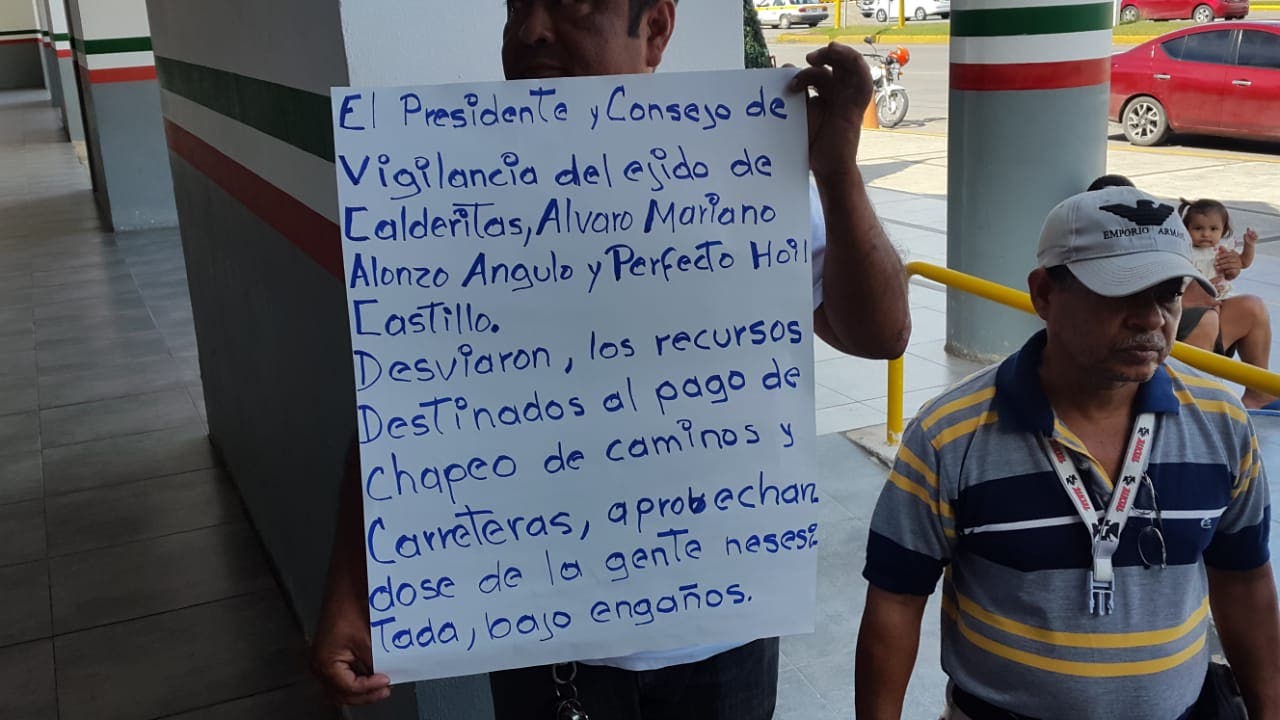 El Presidente y Consejo de
Vigilancia del ejido de
Calderitas, Alvaro Mariano
Alonzo Angulo y Perfecto Hoil
Castillo.
Desviaron, los recursos
Destinados al pago de
chapeo de caminos y
Carreteras, aprobechan
dose de la gente nesesi
Tada, bajo engaños.
EMPORIO ARMA
TECATE